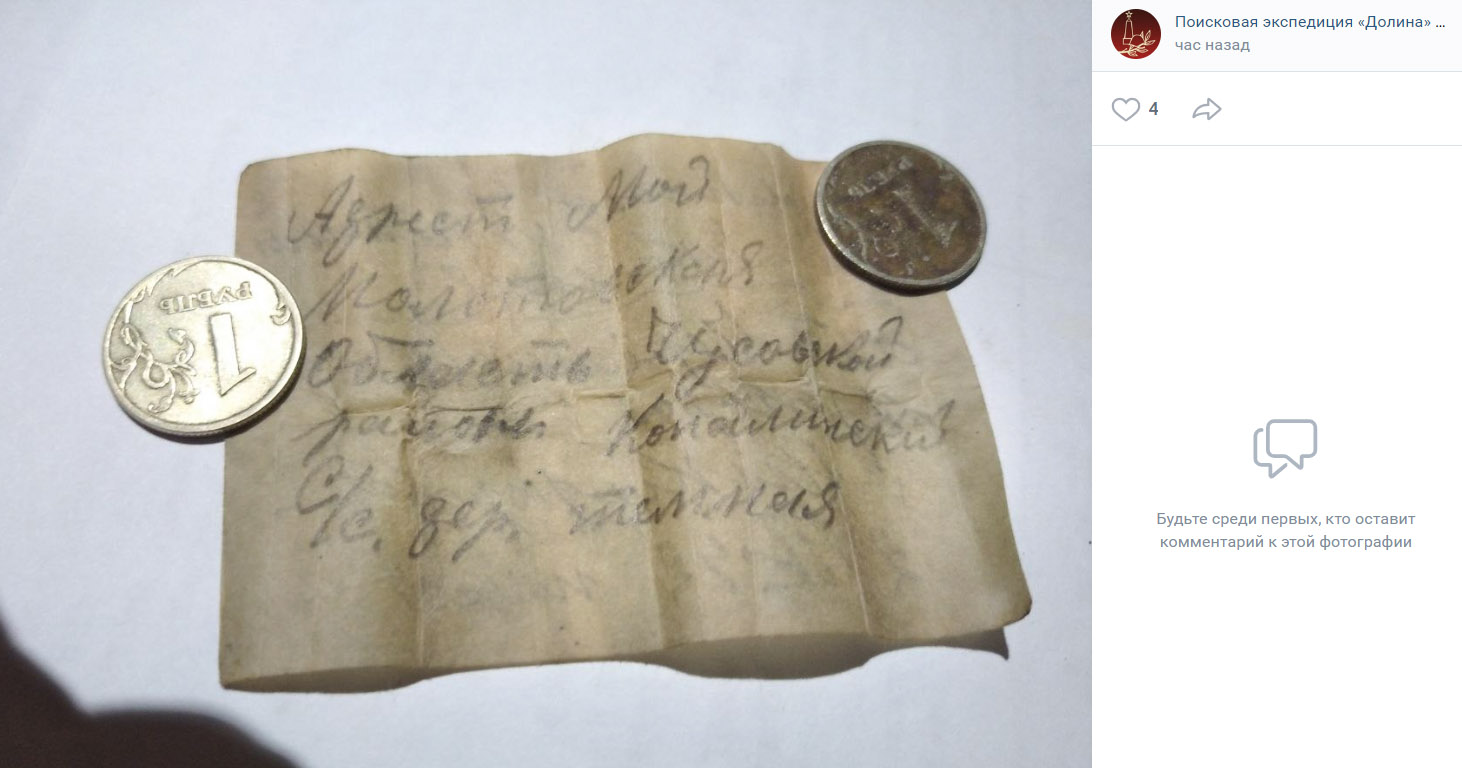 Адрест Мой
Молотовская
Область Чусовской
района Копалинский
С/с. дер. темная
РУБЛЬ
1
Поисковая экспедиция «Долина» ...
час назад
4
Будьте среди первых, кто оставит
комментарий к этой фотографии